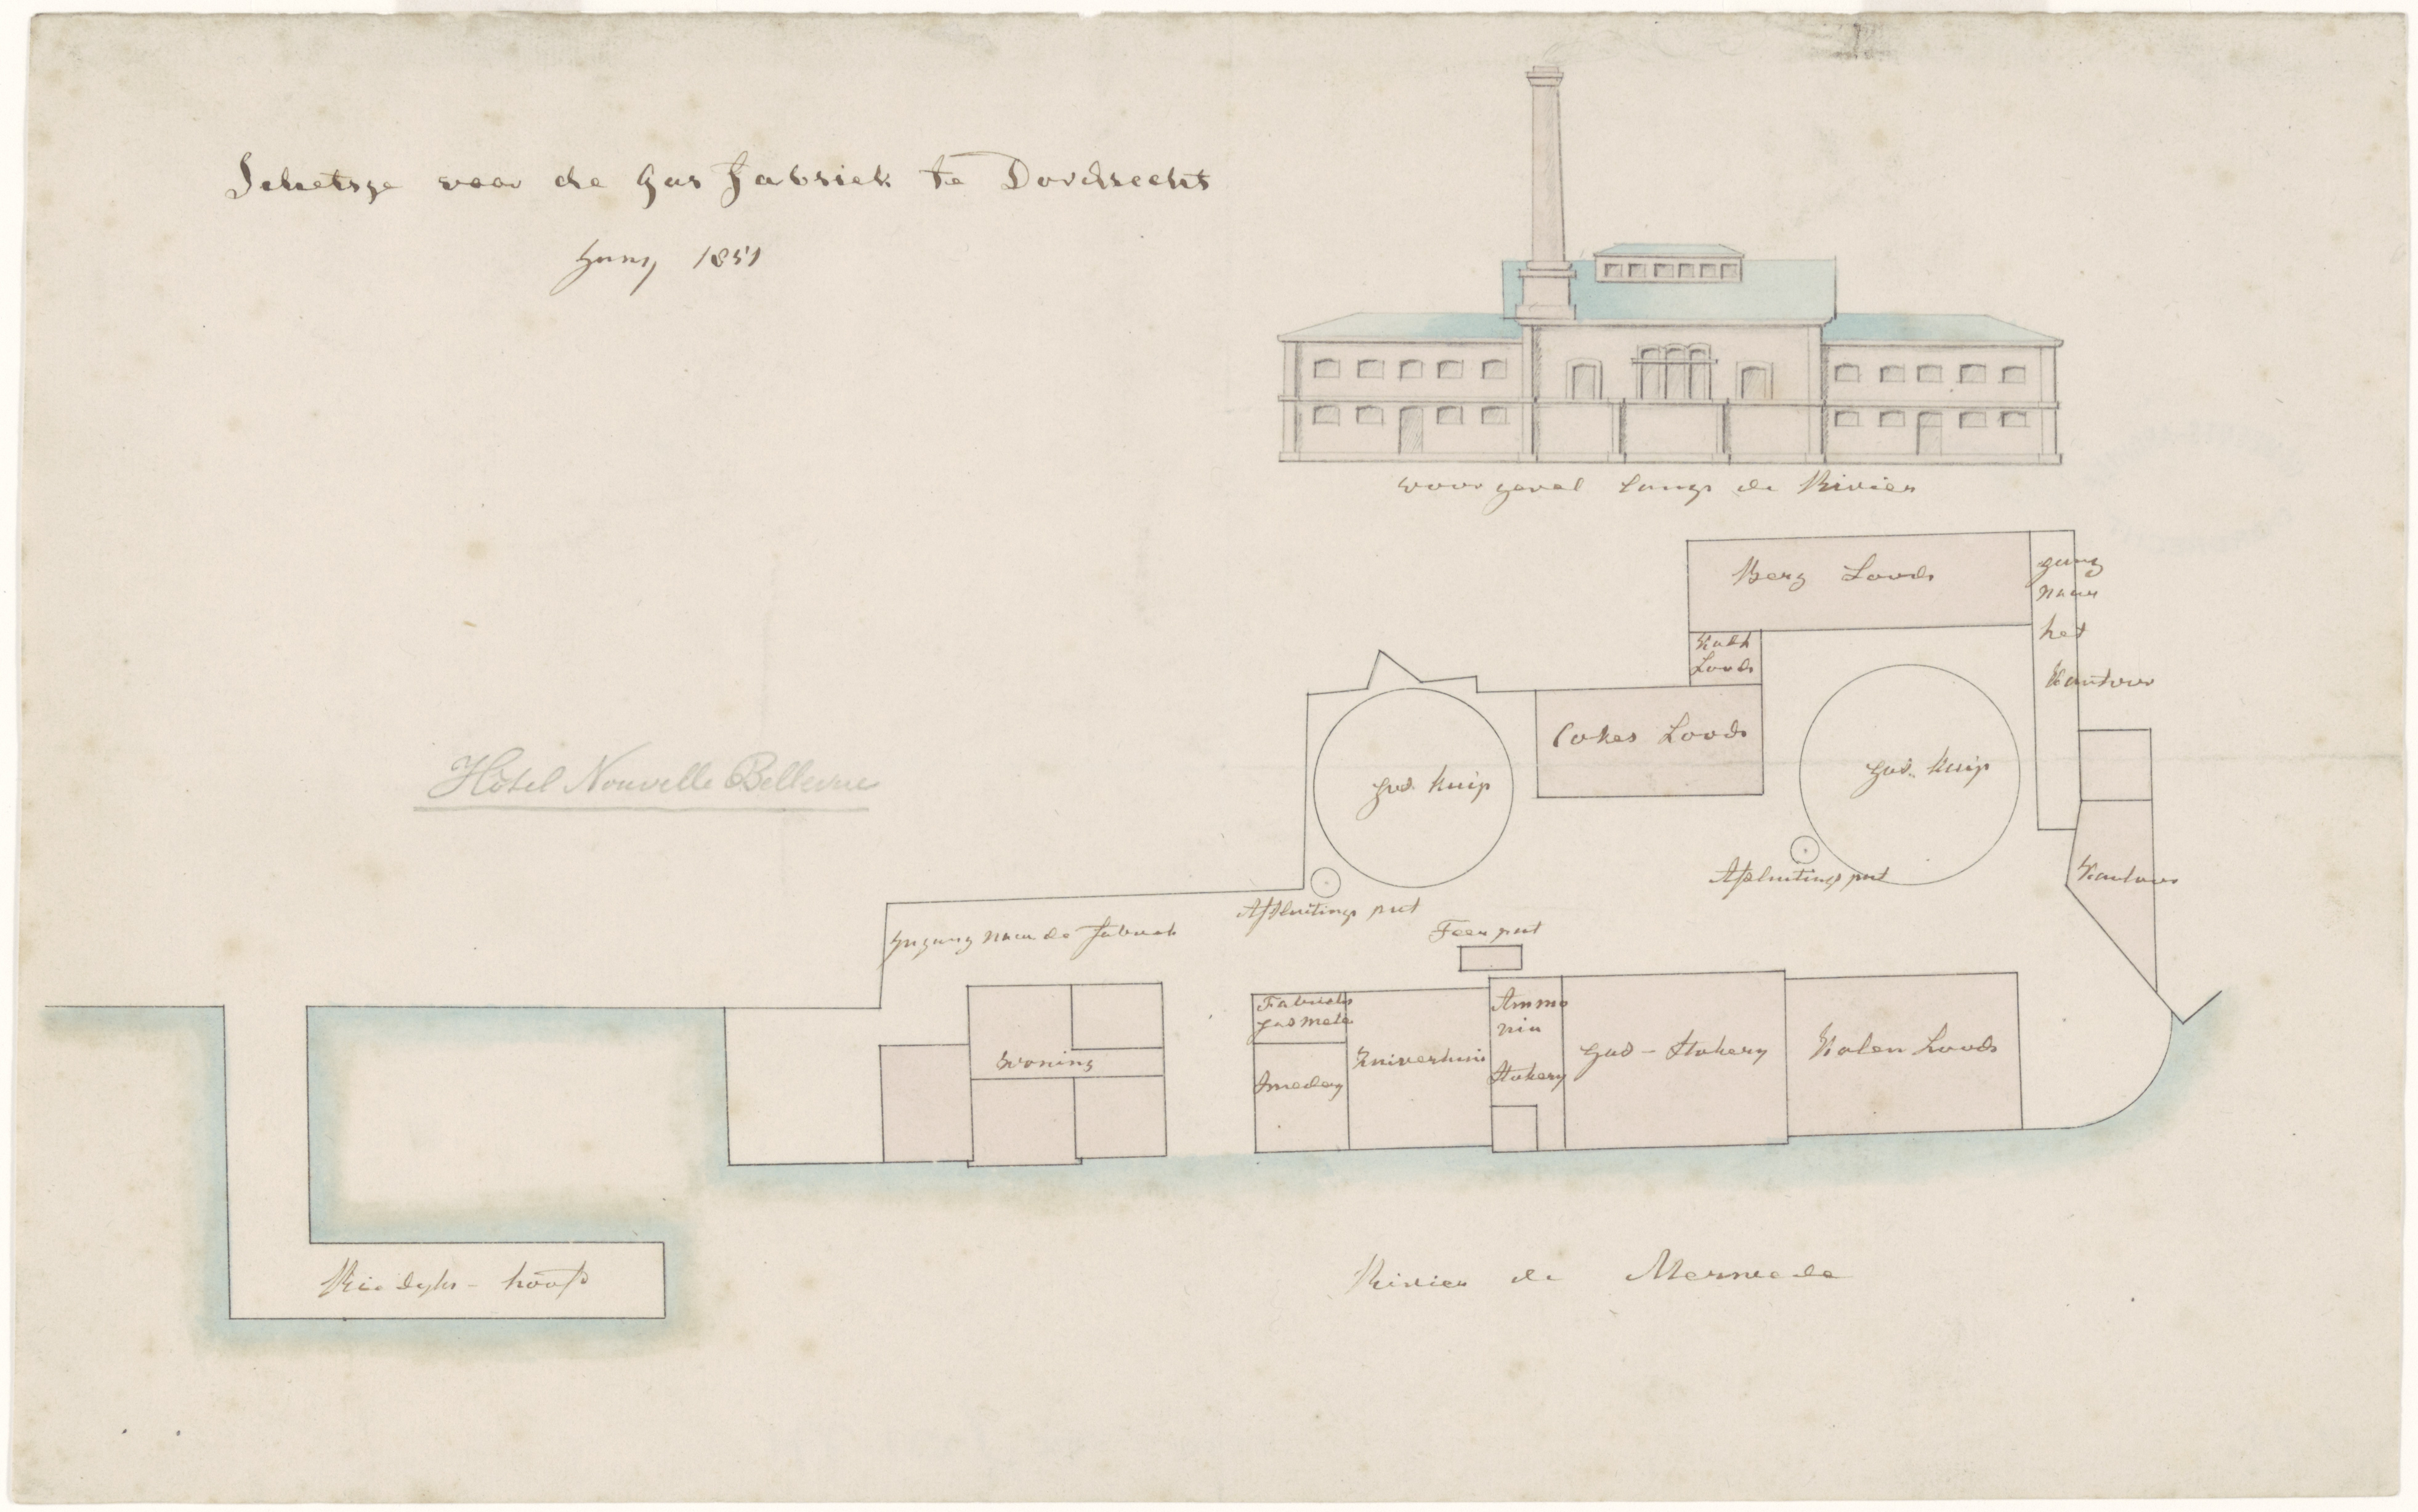 Schetsge voor de Gas fabriek te Dordrecht
Juny 1851
voorgevel langs de Rivier
Berg Loods
gang
naar
het
Kantoor
Kalk
Loods
Cokes Loods
gas kuip
gas kuip
Hôtel Nouvelle Bellevue
Afsluitings put
Kantoor
Afsluitings put
Teer put
Ingang naar de fabriek
Fabrieks
gasmete
Ammo
nia
Stokery
Woning
Zuiverhuis
gas-stokery
Kolen Loods
Smedery
Riedyks-hoofd
Rivier de Merwede